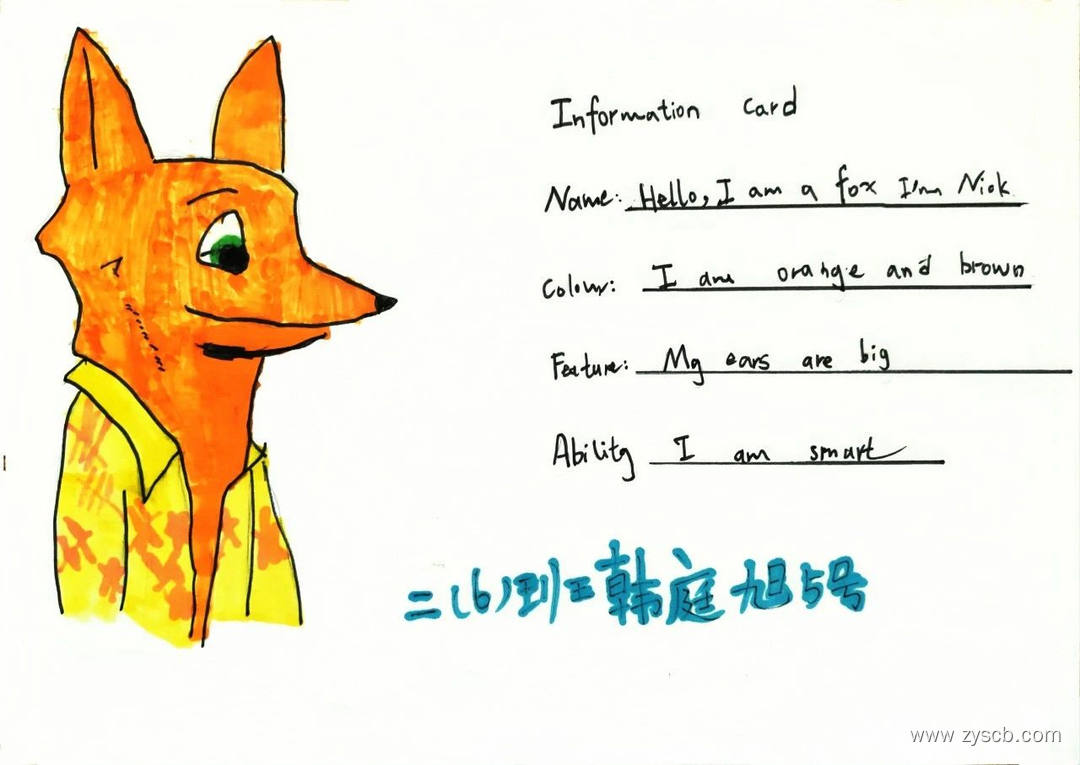 Information card
Name: Hello, I am a fox I'm Nick
Colour: I am orange and brown
Feature: My ears are big
Ability I am smart
二(6)班 韩庭旭 5号
www.zyscb.com